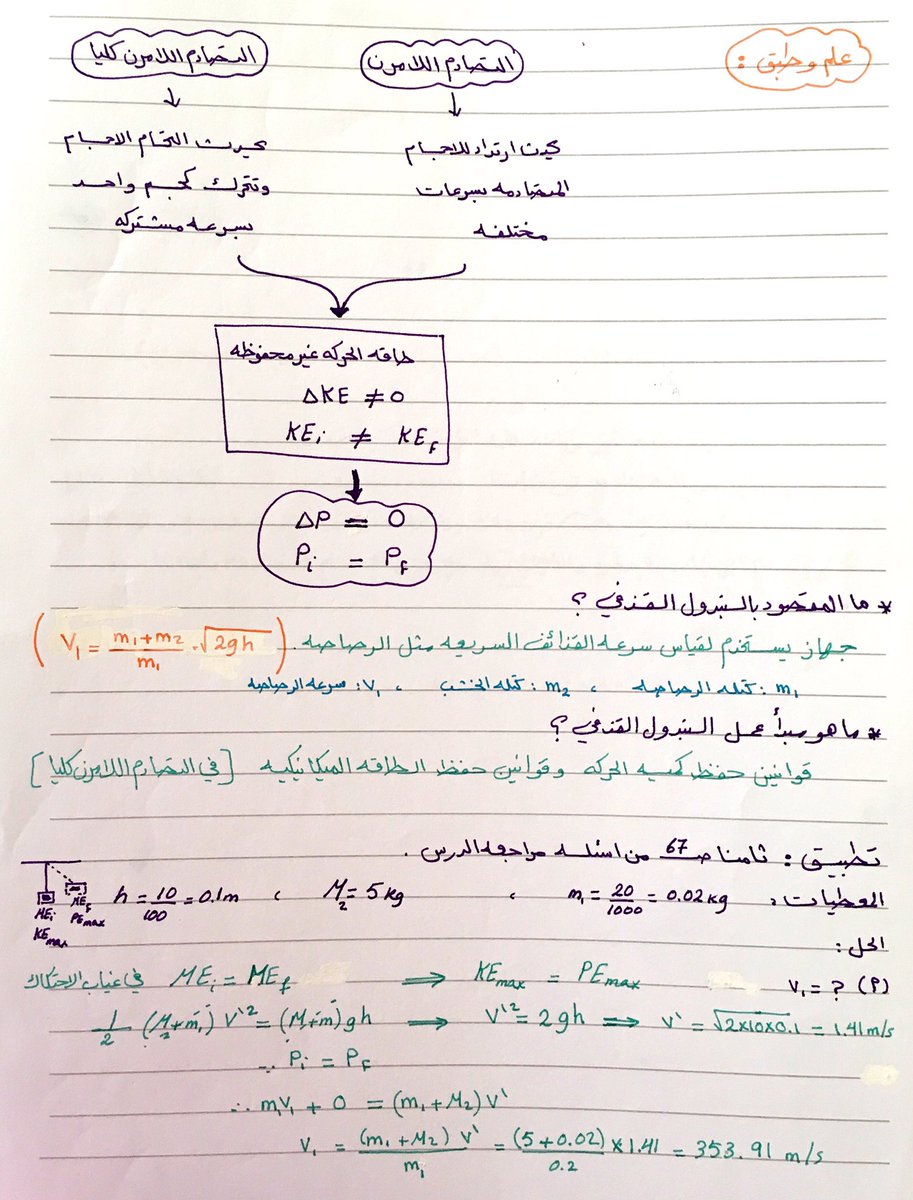 علم وطبق :
التصادم اللامرن
يحدث ارتداد للاجسام
المتصادمه بسرعات
مختلفه
التصادم اللامرن كليا
يحدث التحام الاجسام
وتتحرك كجسم واحد
بسرعه مشتركه
طاقه الحركه غير محفوظه
ΔKE ≠ 0
KEi ≠ KEf
ΔP = 0
Pi = Pf
* ما المقصود بالبندول القذفي ؟
جهاز يستخدم لقياس سرعه القذائف السريعه مثل الرصاصه. (V1 = m1+m2/m1 . √2gh)
m1 : كتله الرصاصه ، m2 : كتله الخشب ، V1 : سرعه الرصاصه
* ما هو مبدأ عمل البندول القذفي ؟
قوانين حفظ كميه الحركه وقوانين حفظ الطاقه الميكانيكيه [في التصادم اللامرن كليا]
تطبيق : ثامنا ص 67 من اسئله مراجعه الدرس .
المعطيات: m1 = 20/1000 = 0.02 kg ، M2 = 5 kg ، h = 10/100 = 0.1m
MEi
KEmax
MEf
PEmax
الحل :
(P) V1 = ?
في غياب الاحتكاك MEi = MEf ⟹ KEmax = PEmax
1/2 (M2+m1) V`2 = (M+m) gh ⟹ V`2 = 2gh ⟹ V` = √2x10x0.1 = 1.41 m/s
∵ Pi = Pf
∴ m1V1 + 0 = (m1 + M2) V`
V1 = (m1 + M2) V`/m1 = (5+0.02)/0.2 * 1.41 = 353.91 m/s